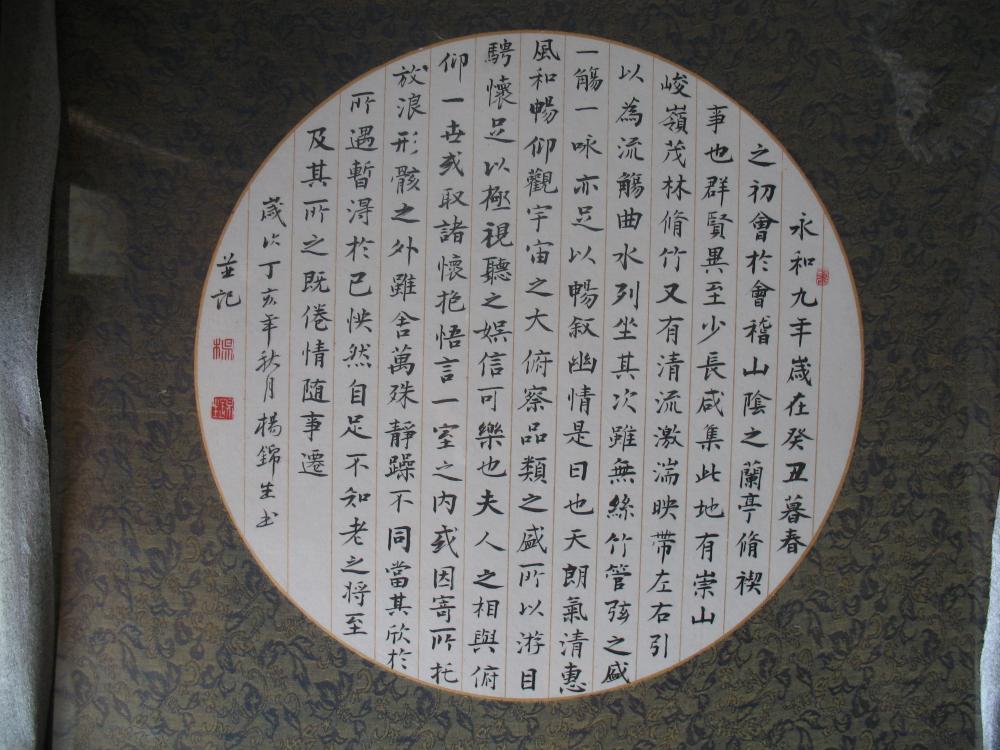 永和九年歲在癸丑暮春
之初會於會稽山陰之蘭亭脩禊
事也群賢異至少長咸集此地有崇山
峻嶺茂林脩竹又有清流激湍映帶左右引
以為流觴曲水列坐其次雖無絲竹管弦之盛
一觴一咏亦足以暢叙幽情是日也天朗氣清惠
風和暢仰觀宇宙之大俯察品類之盛所以游目
騁懷足以極視聽之娛信可樂也夫人之相與俯
仰一世或取諸懷抱悟言一室之内或因寄所托
放浪形骸之外雖舍萬殊靜躁不同當其欣於
所遇暫得於己怏然自足不知老之將至
及其所之既倦情随事遷
歲次丁亥年秋月楊錦生书
並記